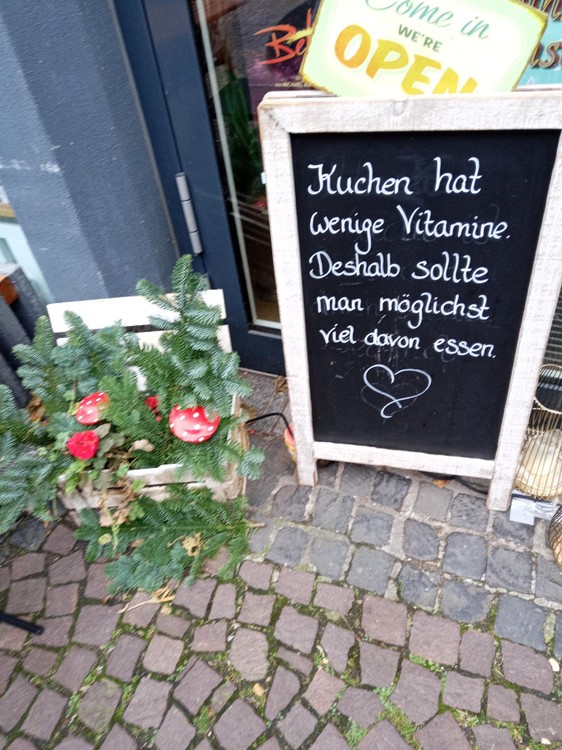 Come in
WE'RE
OPEN
Kuchen hat
wenige Vitamine.
Deshalb sollte
man möglichst
viel davon essen.